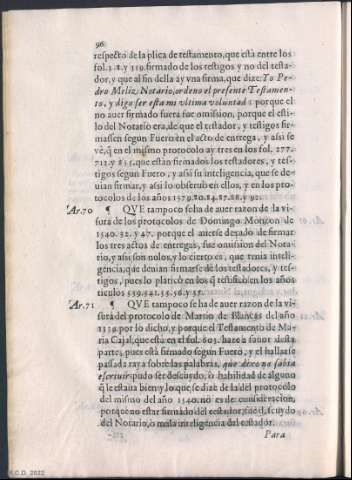 96
respecto de la plica de testamento, que està entre los
fol. 118. y 119. firmado de los testigos y no del testa-
dor, y que al fin della ay vna firma, que dize: Yo Pe-
dro Meliz Notario, ordeno el presente Testamen-
to, y digo ser esta mi vltima voluntad: porque el
no auer firmado fuera fue omision, porque el esti-
lo del Notario era, de que el testador, y testigos fir-
massen segun Fuero en el acto de entrega, y assi se
vè, q̃ en el mismo protocolo ay tres en los fol. 277.
712. y 835. que estan firmados los testadores, y tes-
tigos segun Fuero, y assi su inteligencia, que se de-
uian firmar, y assi lo obseruò en ellos, y en los pro-
tocolos de los años 1579.
Ar. 70 ¶ QVE tampoco se ha de auer razon de la vi-
sura de los protocolos de Domingo Monzon de
1540. 32. y 47. porque el auerse dexado de firmar
los tres actos de entregas, fue omision del Nota-
rio, y assi son nulos, y lo cierto es, que tenia inteli-
gencia, que deuian firmarse de los testadores, y tes-
tigos, pues lo platicò en los q̃ testificò en los años
Ar. 71 ¶ QVE tampoco se ha de auer razon de la vi-
sura del protocolo de Martin de Blancas del año
por lo dicho, y porque el Testamento de Ma-
ria Cajal, que està en el fol. 605. haze a fauor desta
parte, pues està firmado segun Fuero, y el hallarse
passada raya sobre las palabras, que dixo no sabia
escriuir, pudo ser descuydo, ò habilidad de alguno
q̃ le estaua bien: y lo que se dize de la del protocolo
del mismo del año 1540. no es de consideracion,
porque no estar firmado del testador, fue descuydo
del Notario, ò mala inteligencia del testador.
Para
A.C.D. 2022